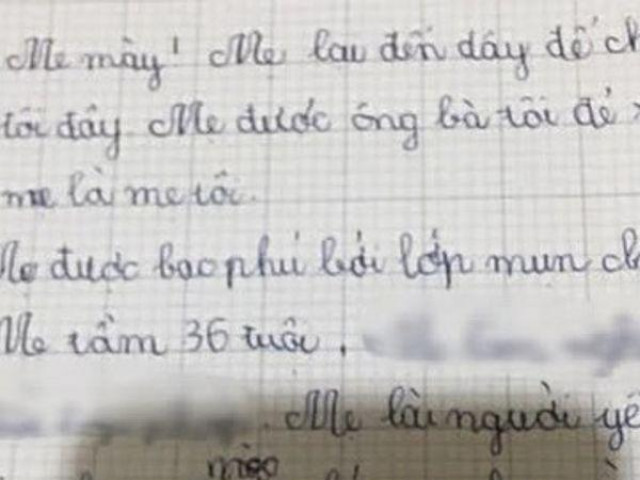 Mẹ mày! Mẹ lau đến đây để ch
tôi đây Mẹ được ông bà tôi đẻ
mẹ là mẹ tôi.
Mẹ được bao phủ bởi lớp mun ch
Mẹ tầm 36 tuổi.
Mẹ lài người yê
mèo